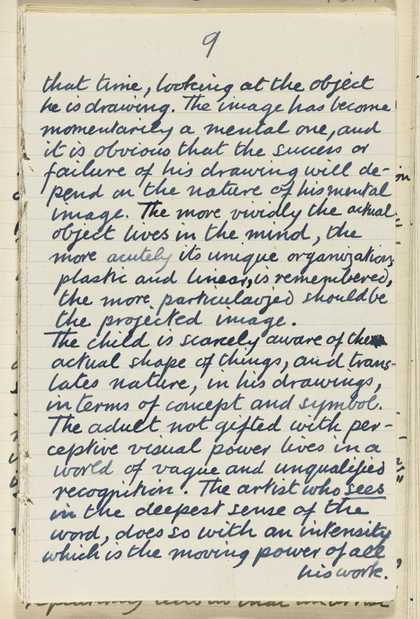 9
that time, looking at the object
he is drawing. The image has become
momentarily a mental one, and
it is obvious that the success or
failure of his drawing will de-
pend on the nature of his mental
image. The more vividly the actual
object lives in the mind, the
more acutely its unique organization,
plastic and linear, is remembered,
the more particularized should be
the projected image.
The child is scarcely aware of the
actual shape of things, and trans-
lates nature, in his drawings,
in terms of concept and symbol.
The adult not gifted with per-
ceptive visual power lives in a
world of vague and unqualified
recognition. The artist who sees
in the deepest sense of the
word, does so with an intensity
which is the moving power of all
his work.